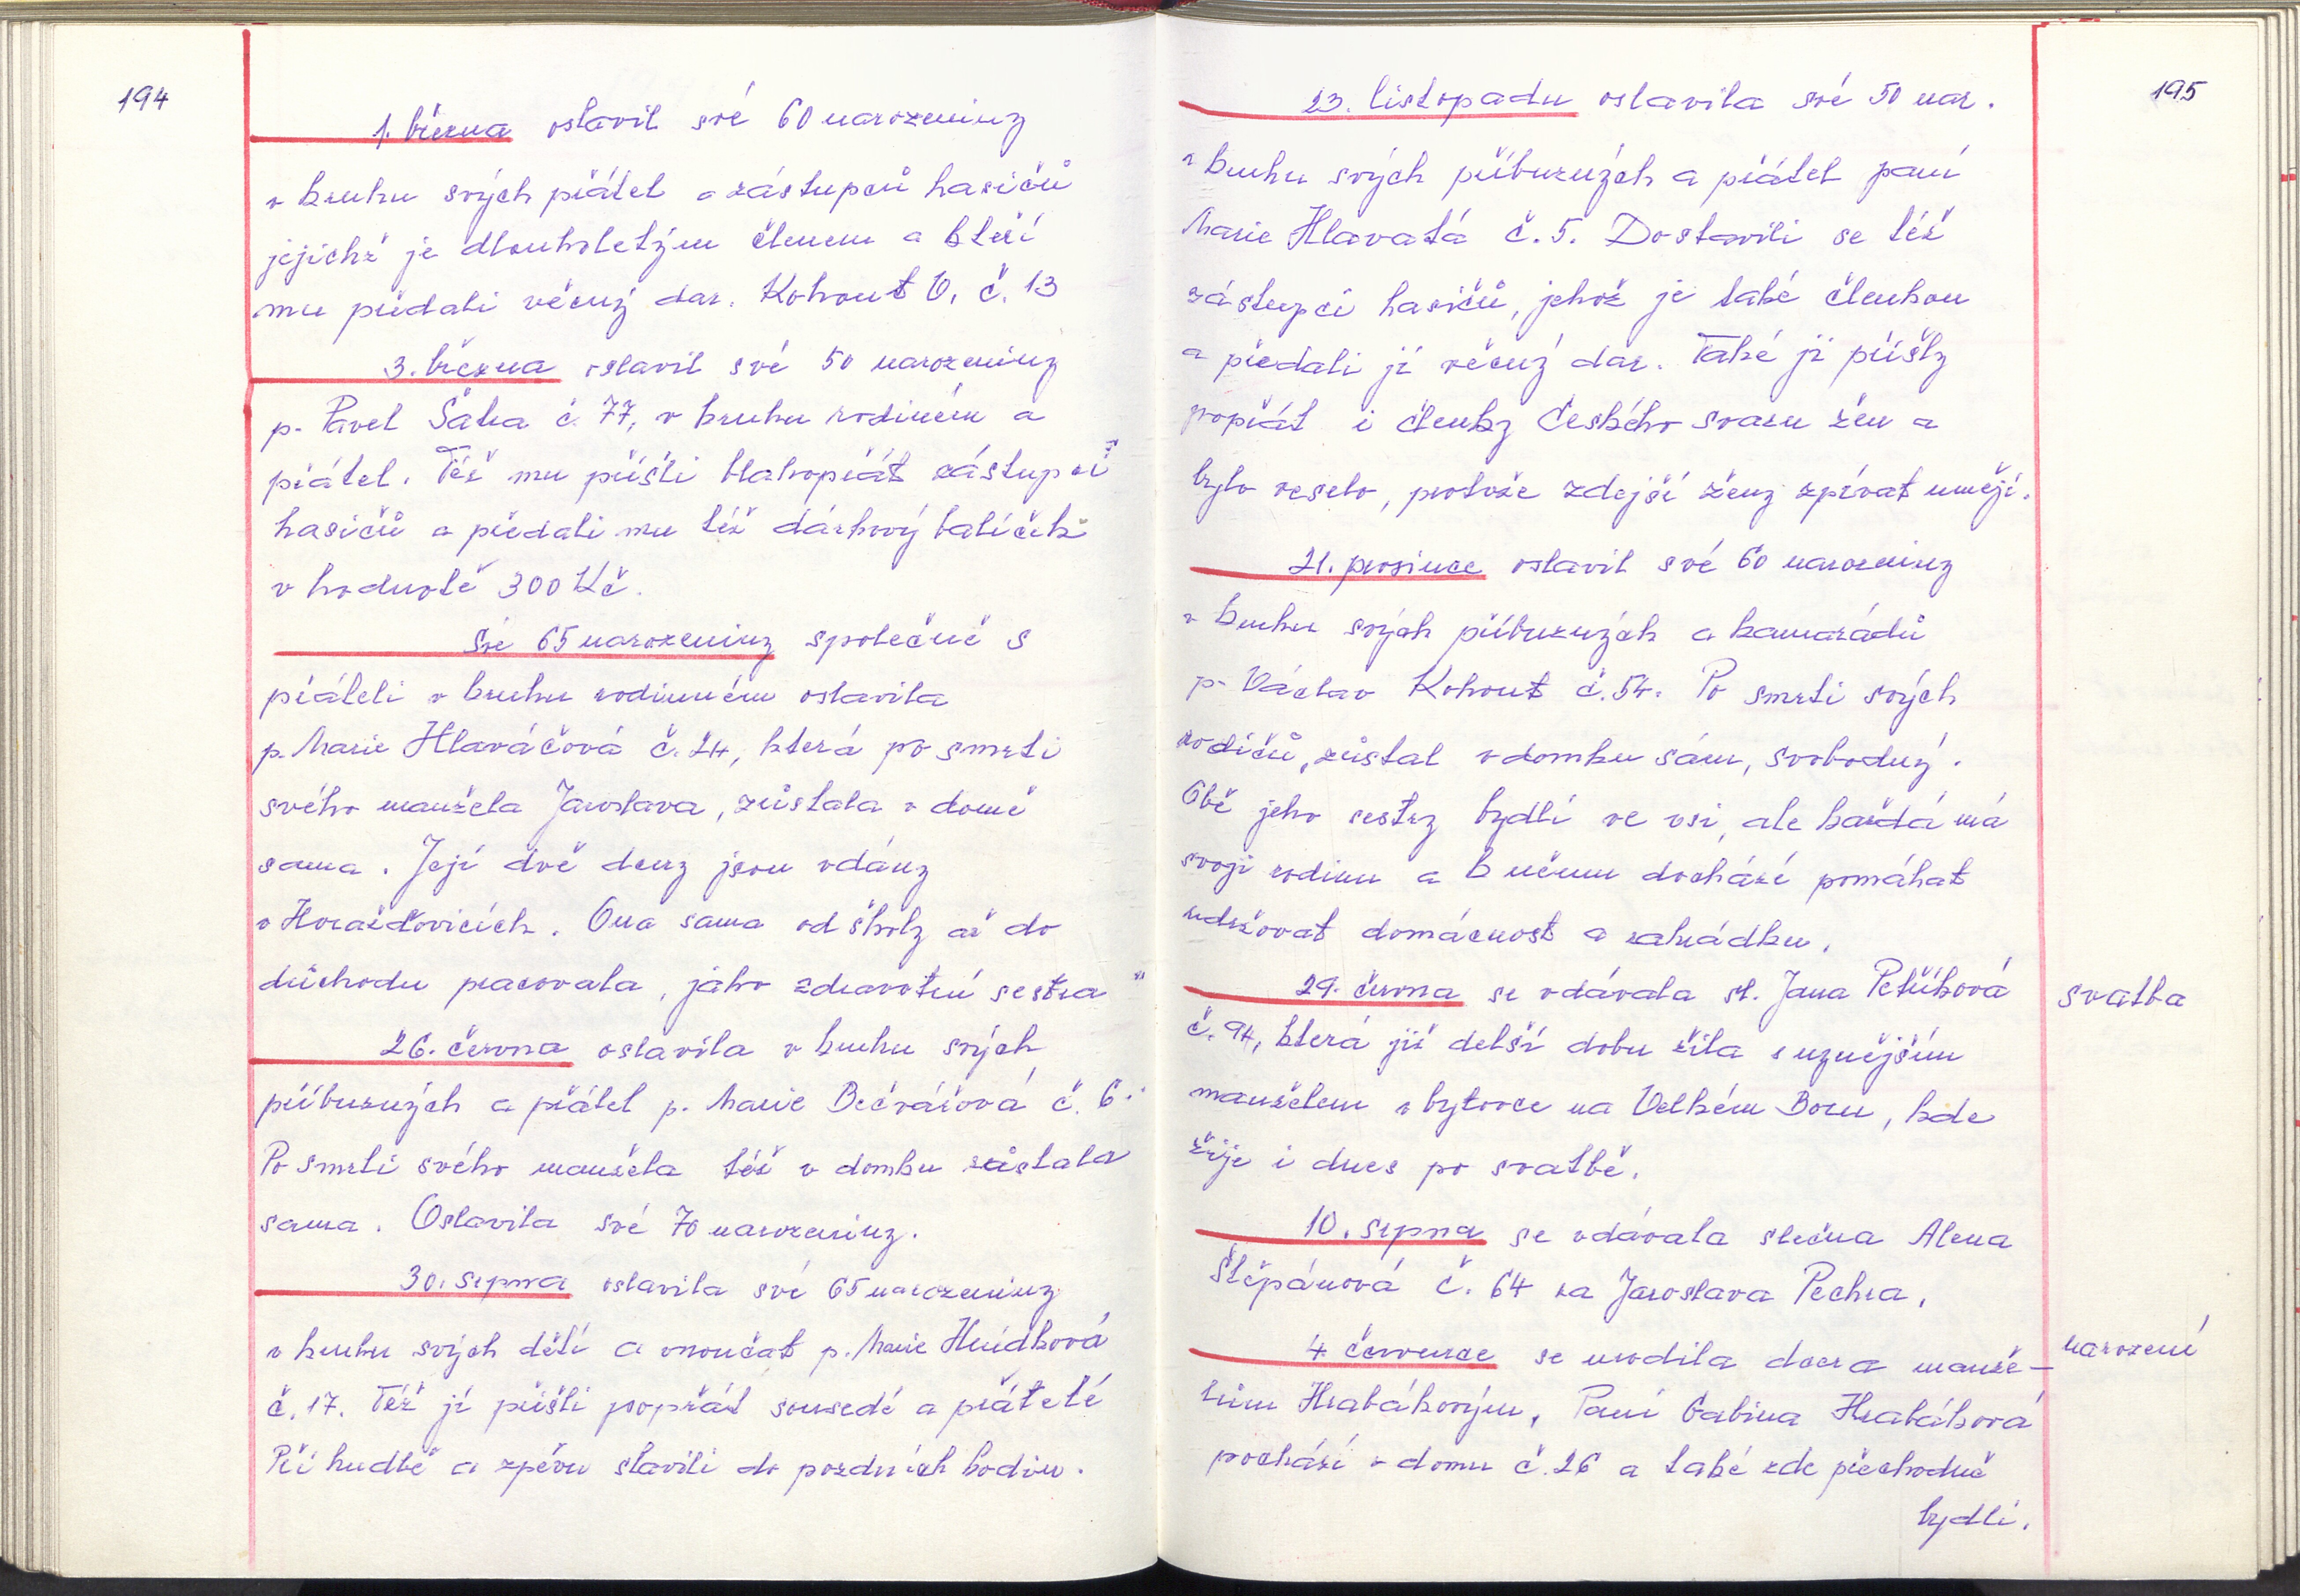 194
1. března oslavil své 60 narozeniny
v kruhu svých přátel a zástupců hasičů
jejichž je dlouholetým členem a kteří
mu předali věcný dar. Kohout V. č. 13
3. března oslavil své 50 narozeniny
p. Pavel Šatra č. 77, v kruhu rodiném a
přátel. Též mu příšli blahopřát zástupci
hasičů a předali mu též dárkový balíček
v hodnotě 300 Kč.
Své 65 narozeniny společně s
přáteli v kruhu rodinném oslavila
p. Marie Hlaváčová č. 24, která po smrti
svého manžela Jaroslava, zůstala v domě
sama. Její dvě dcery jsou vdány
v Horažďovicích. Ona sama od školy až do
důchodu pracovala, jáko zdravotní sestra
26. června oslavila v kruhu svých
příbuzných a přátel p. Marie Bečvářová č. 6.
Po smrti svého manžela též v domku zůstala
sama. Oslavila své 70 narozeniny.
30. srpna oslavila své 65 narozeniny
v kruhu svých dětí a vnoučat p. Marie Hnídková
č. 17. Též jí příšli popřát sousedé a přátelé
Při hudbě a zpěvu slavili do pozdních hodin.
195
23. listopadu oslavila své 50 nar.
v kruhu svých příbuzných a přátel paní
Marie Hlavatá č. 5. Dostavili se též
zástupci hasičů, jehož je také členkou
a předali jí věcný dar. Také jí příšly
popřát i členky Českého svazu žen a
bylo veselo, protože zdejší ženy zpívat umějí.
21. prosince oslavil své 60 narozeniny
v kruhu svých příbuzných a kamarádů
p. Václav Kohout č. 54. Po smrti svých
rodičů, zůstal v domku sám, svobodný.
Obě jeho sestry bydlí ve vsi, ale každá má
svoji rodinu a k němu dochází pomáhat
udržovat domácnost a zahrádku.
29. června se vdávala sl. Jana Petříková
č. 94, která již delší dobu žila s nynějším
manželem v bytovce na Velkém Boru, kde
žije i dnes po svatbě.
svatba
10. srpna se vdávala slečna Alena
Štěpánová č. 64 za Jaroslava Pechra.
4 července se narodila dcera manže-
lům Hrabákovým. Paní Gabina Hrabáková
pochází z domu č. 26 a také zde přechodně
bydlí.
narození